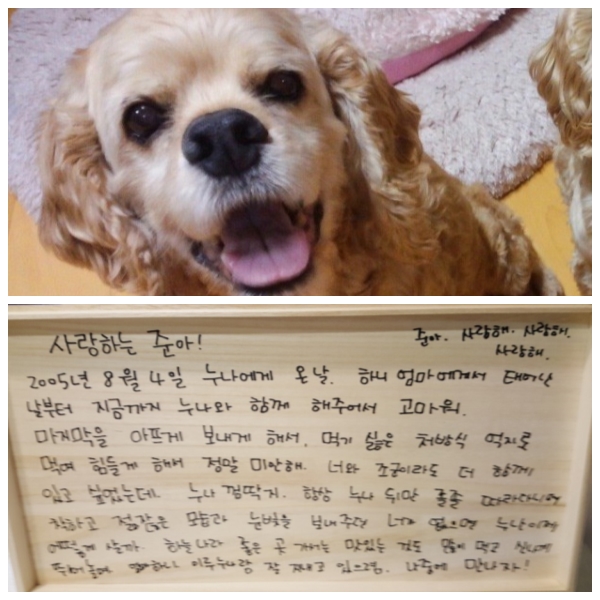 사랑하는 준아!
준아. 사랑해. 사랑해.
사랑해.
2005년 8월 4일 누나에게 온날. 하니 엄마에게서 태어난
날부터 지금까지 누나와 함께 해주어서 고마워.
마지막을 아프게 보내게 해서, 먹기 싫은 처방식 억지로
먹여 힘들게 해서 정말 미안해. 너와 조금이라도 더 함께
있고 싶었는데. 누나 껌딱지. 항상 누나 뒤만 졸졸 따라다니며
착하고 점잖은 모습과 눈빛을 보내주던 너가 없으면 누난 이제
어떻게 살까. 하늘나라 좋은 곳 가서는 맛있는 것도 많이 먹고 신나게
뛰어놀며 하니 이루누나랑 잘 지내고 있으렴. 나중에 만나자!